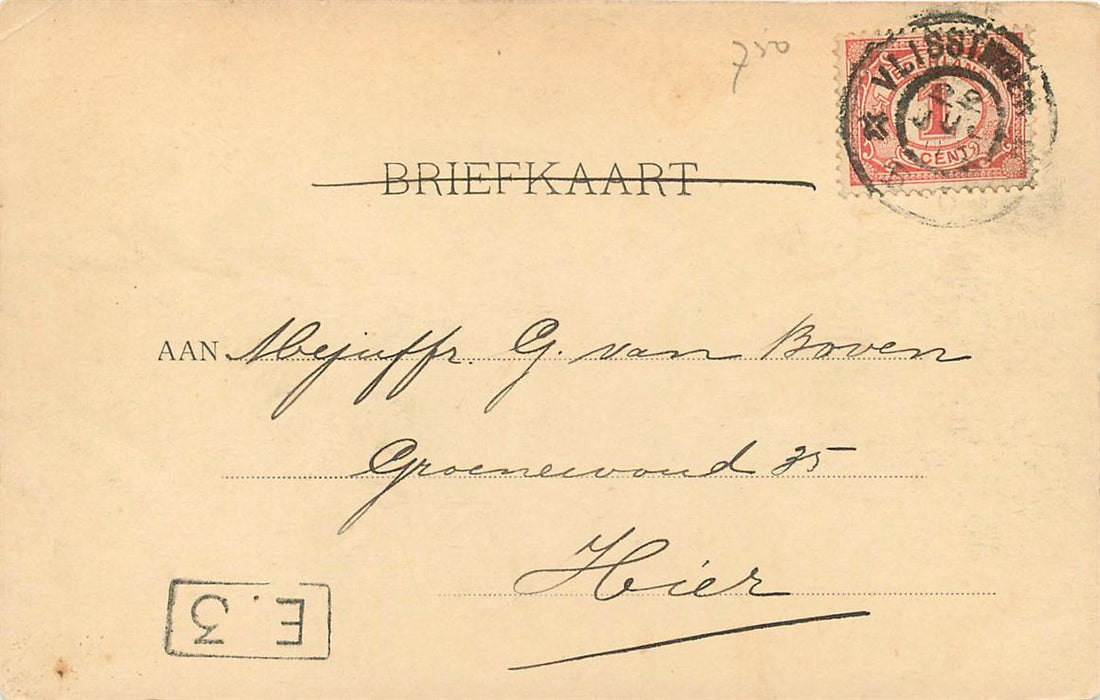 750
VLISSINGEN
NEDERLAND
1
CENT
BRIEFKAART
AAN Mejuffr. G. van Boven
Groenewoud 35
Hier
E.3